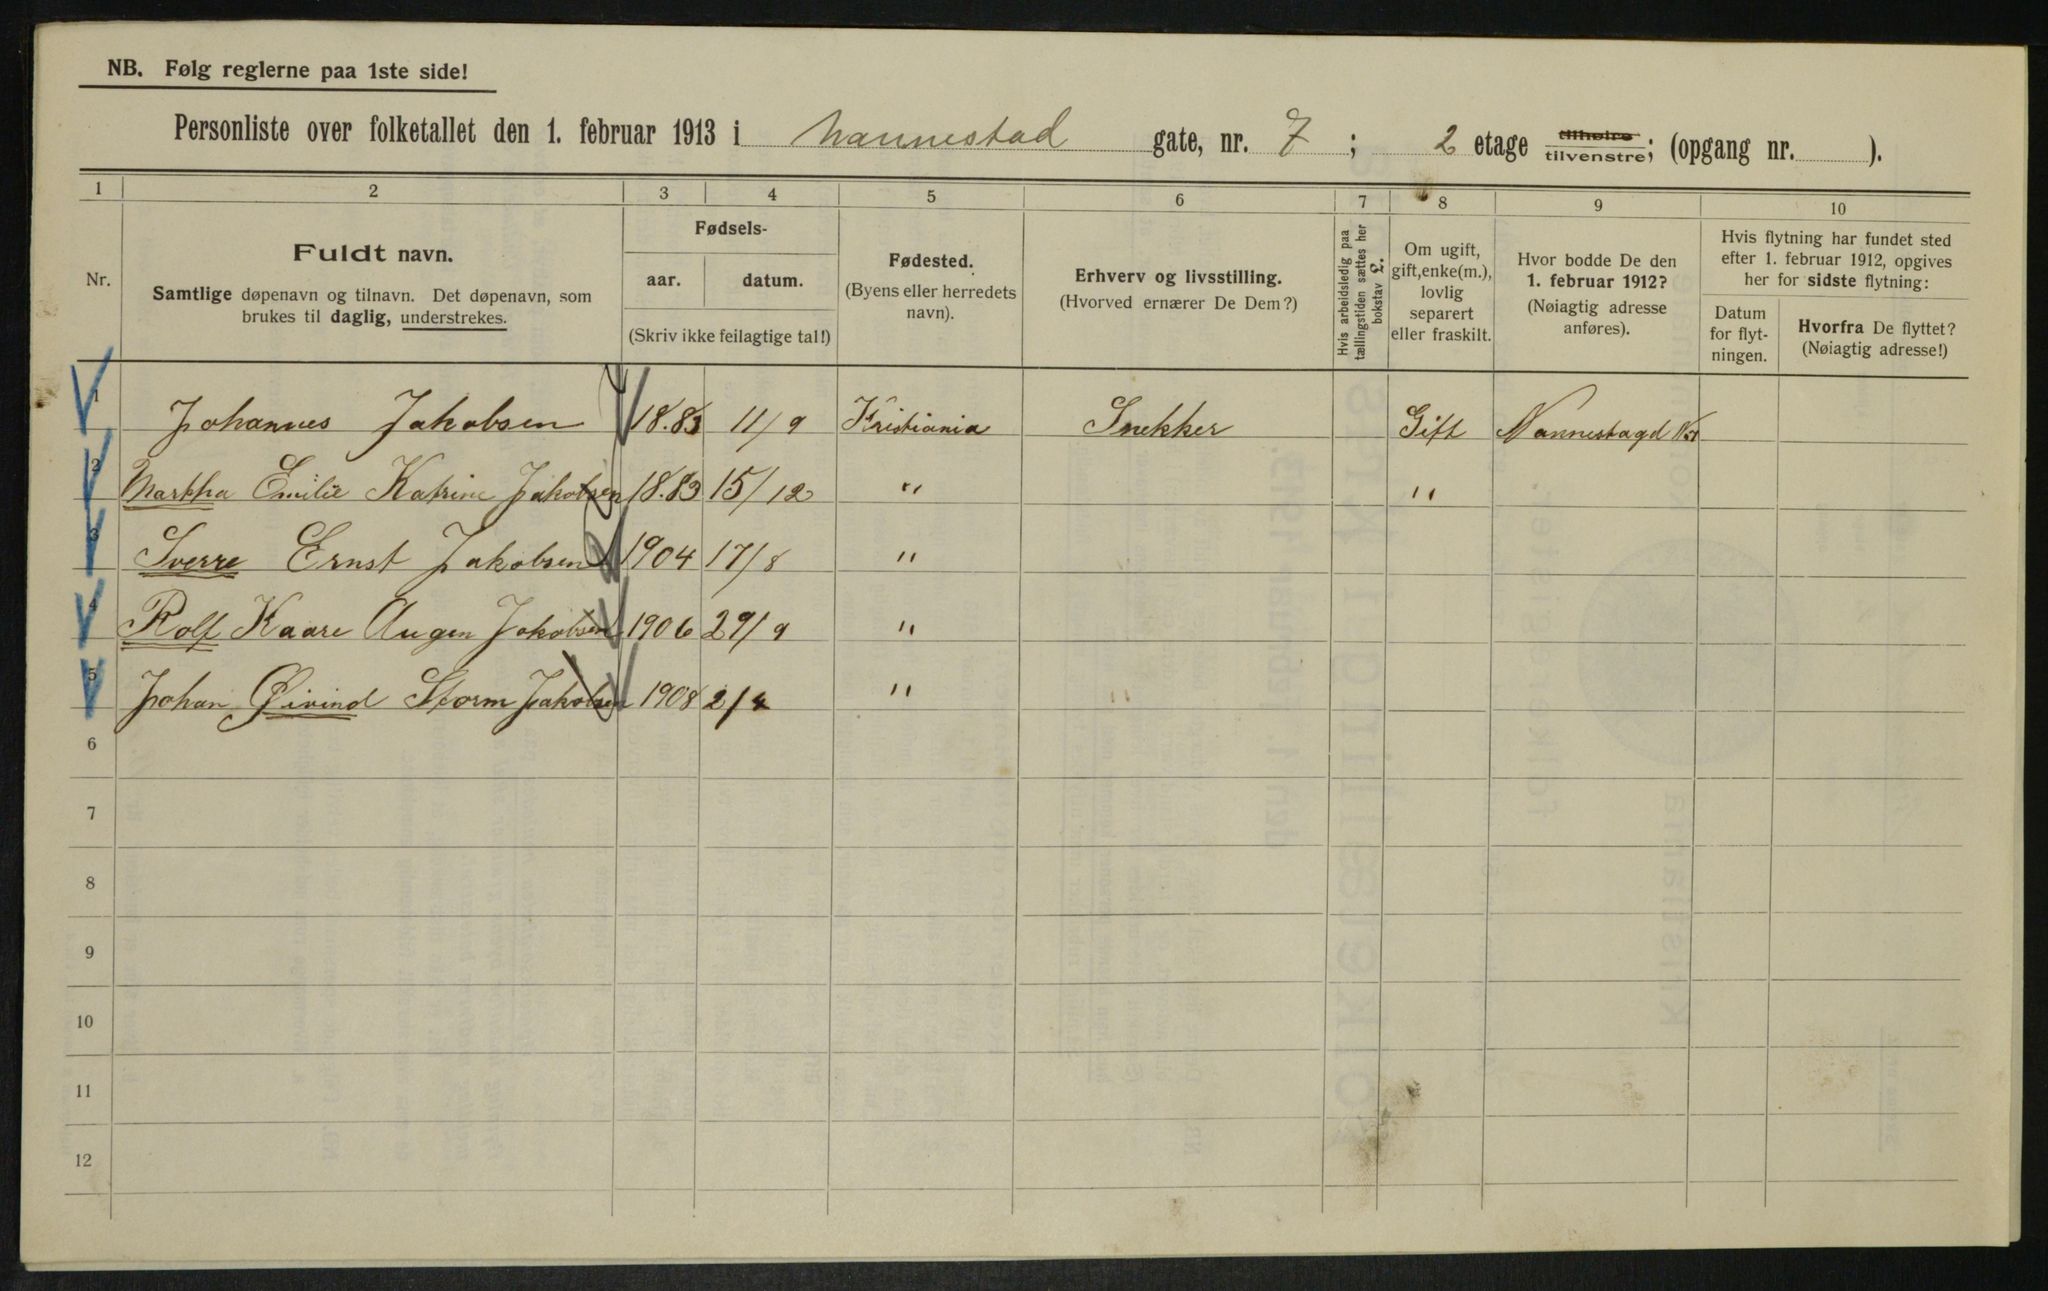 NB. Følg reglerne paa 1ste side!
Personliste over folketallet den 1. februar 1913 i Nannestad gate, nr. 7 ; 2 etage tilhøire tilvenstre; (opgang nr. ).
1 2 3 4 5 6 7 8 9 10
Nr.
Fuldt navn.
Samtlige døpenavn og tilnavn. Det døpenavn, som
brukes til daglig, understrekes.
Fødsels-
aar. datum.
(Skriv ikke feilagtige tal!)
Fødested.
(Byens eller herredets
navn).
Erhverv og livsstilling.
(Hvorved ernærer De Dem?)
Hvis arbeidsledig paa
tællingstiden sættes her
bokstav L.
Om ugift,
gift, enke(m.),
lovlig
separert
eller fraskilt.
Hvor bodde De den
1. februar 1912?
(Nøiagtig adresse
anføres).
Hvis flytning har fundet sted
efter 1. februar 1912, opgives
her for sidste flytning:
Datum
for flyt-
ningen.
Hvorfra De flyttet?
(Nøiagtig adresse!)
1 Johannes Jakobsen 18.83 11/9 Kristiania Snekker Gift Nannestagd N 7
2 Martha Emilie Katrine Jakobsen 18.83 15/12 " "
3 Sverre Ernst Jakobsen 1904 17/8 "
4 Rolf Kaare Augen Jakobsen 1906 29/9 "
5 Johan Øivind Storm Jakobsen 1908 2/4 "
6
7
8
9
10
11
12